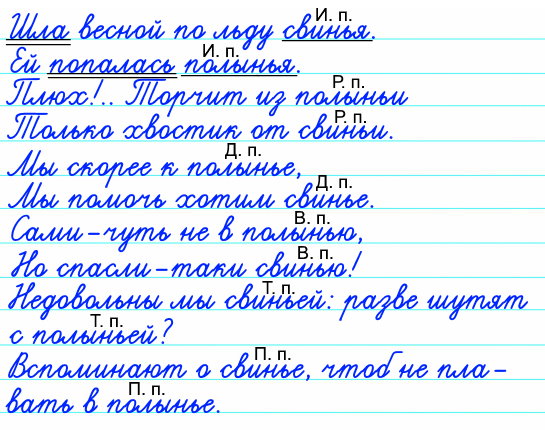 И. п.
Шла весной по льду свинья.
И. п.
Ей попалась полынья.
Р. п.
Плюх!.. Торчит из полыньи
Р. п.
Только хвостик от свиньи.
Д. п.
Мы скорее к полынье,
Д. п.
Мы помочь хотим свинье.
В. п.
Сами – чуть не в полынью,
В. п.
Но спасли – таки свинью!
Т. п.
Недовольны мы свиньей: разве шутят
Т. п.
с полыньей?
П. п.
Вспоминают о свинье, чтоб не пла –
П. п.
вать в полынье.